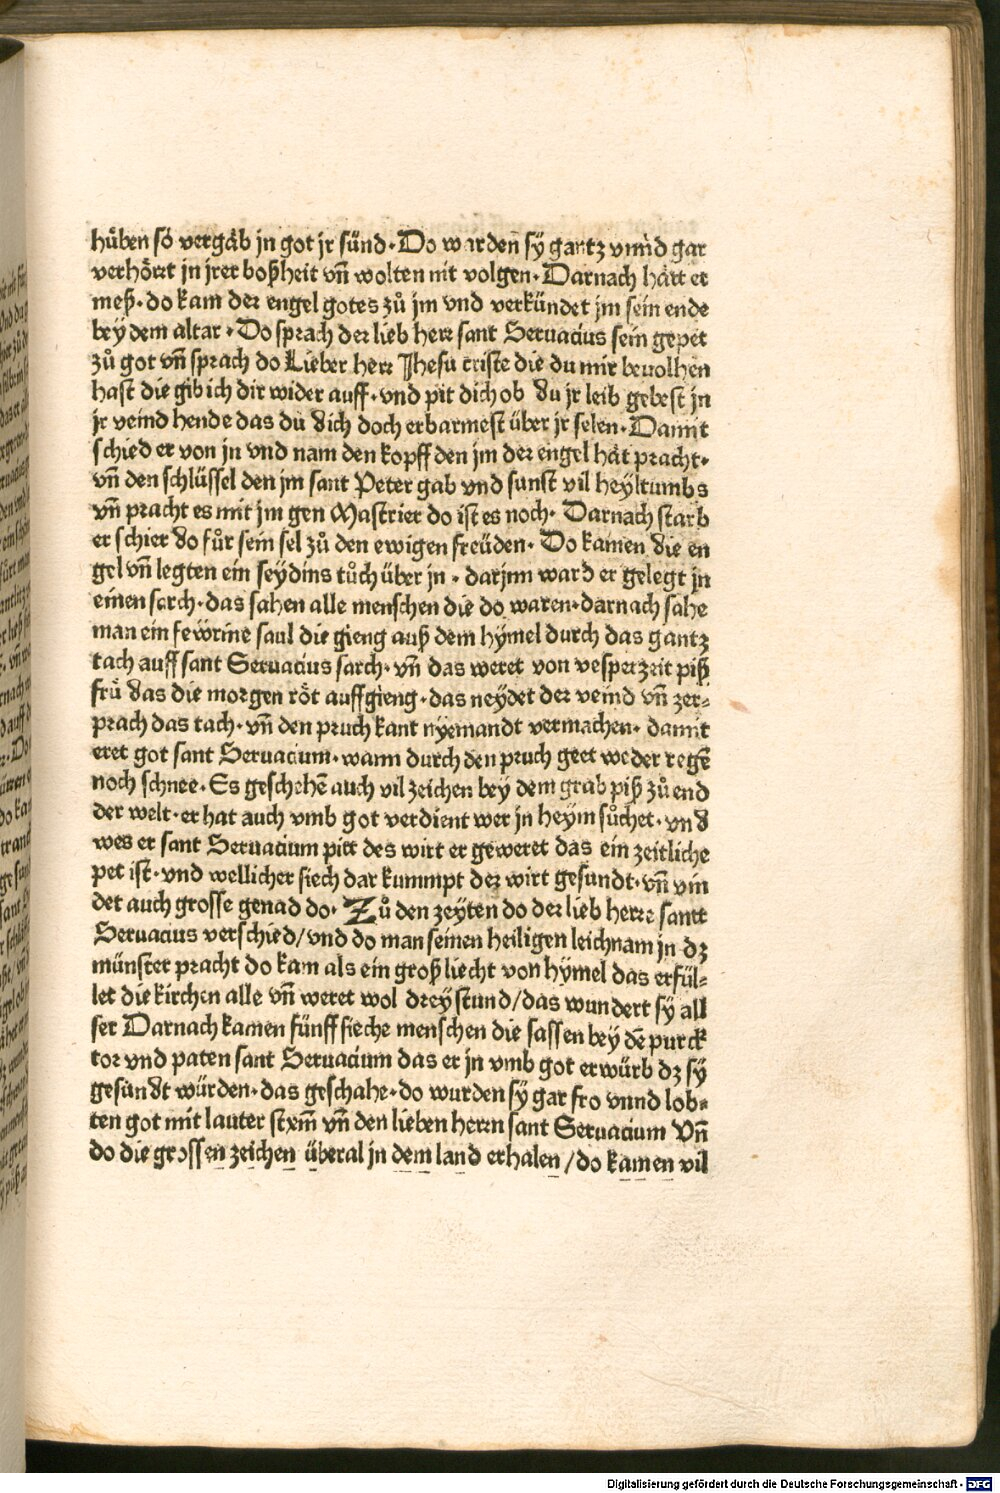 hůben so vergäb jn got jr sünd· Do warden sÿ gantz vnnd gar
verhört in jrer boßheit vn̄ wolten nit volgen· Darnach hätt er
meß· do kam der engel gotes zů jm vnd verkündet jm sein ende
bey dem altar· Do sprach der lieb herr sant Seruacius sein gepet
zů got vn̄ sprach do Lieber herr Jhesu criste die du mir beuolhen
hast die gib ich dir wider auff· vnd pit dich ob du jr leib gebest jn
jr veind hende das du dich doch erbarmest über jr selen· Damit
schied er von jn vnd nam den kopff den jm der engel hät pracht·
vn̄ den schlüssel den jm sant Peter gab vnd sunst vil heyltumbs
vn̄ pracht es mit jm gen Mastrier do ist es noch· Darnach starb
er schier do fůr sein sel zů den ewigen freüden· Do kamen die en
gel vn̄ legten ein seÿdins tůch über jn· darjnn ward er gelegt jn
einen sarch· das sahen alle menschen die do waren· darnach sahe
man ein fewrine saul die gieng auß dem hÿmel durch das gantz
tach auff sant Seruacius sarch· vn̄ das weret von vesperzeit piß
frü das die morgen röt auffgieng· das neydet der veind vn̄ zer⸗
prach das tach· vn̄ den pruch kant nyemandt vermachen· damit
eret got sant Seruacium· wann durch den pruch geet weder regē
noch schnee· Es geschehē auch vil zeichen bey dem grab piß zů end
der welt· er hat auch vmb got verdient wer jn heym sůchet· vnd
wes er sant Seruacium pitt des wirt er geweret das ein zeitliche
pet ist· vnd wellicher siech dar kummpt der wirt gesundt· vn̄ vin
det auch grosse genad do· Zů den zeyten do der lieb herre sant
Seruacius verschied/vnd do man seinen heiligen leichnam in dz
münster pracht do kam als ein groß liecht von hÿmel das erfül⸗
let die kirchen alle vn̄ weret wol drey stund/das wundert sÿ all
ser Darnach kamen fünff sieche menschen die sassen bey dē purck
tor vnd paten sant Seruacium das er jn vmb got erwürb dz sÿ
gesundt würden· das geschahe· do wurden sÿ gar fro vnnd lob⸗
ten got mit lauter stÿm̄ vn̄ den lieben herrn sant Seruacium Vn̄
do die grossen zeichen überal jn dem land erhalen/do kamen vil
Digitalisierung gefördert durch die Deutsche Forschungsgemeinschaft - DFG